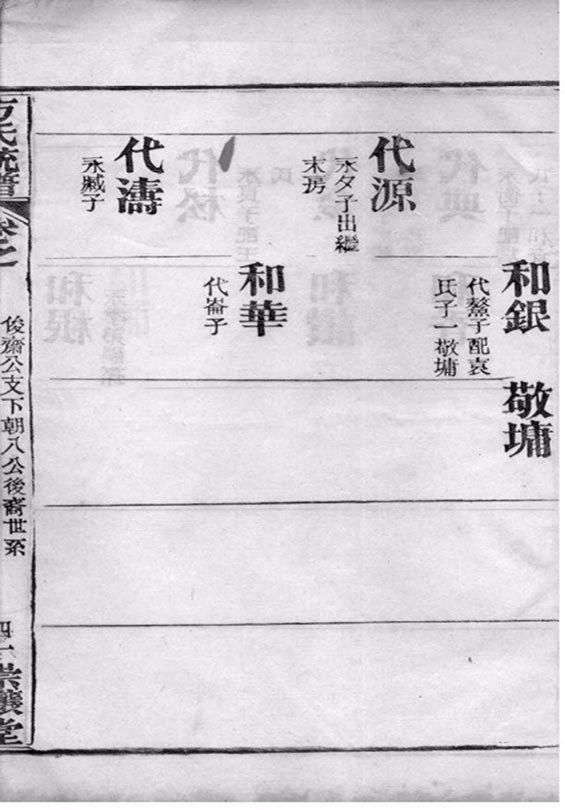 和銀
代鰲子配袁
氏子一敬墉
敬墉
代源
永夕子出繼
末房
和華
代崙子
代濤
永臧子
方氏統譜
卷之一
俊齋公支下朝八公後裔世系
四一
崇讓堂